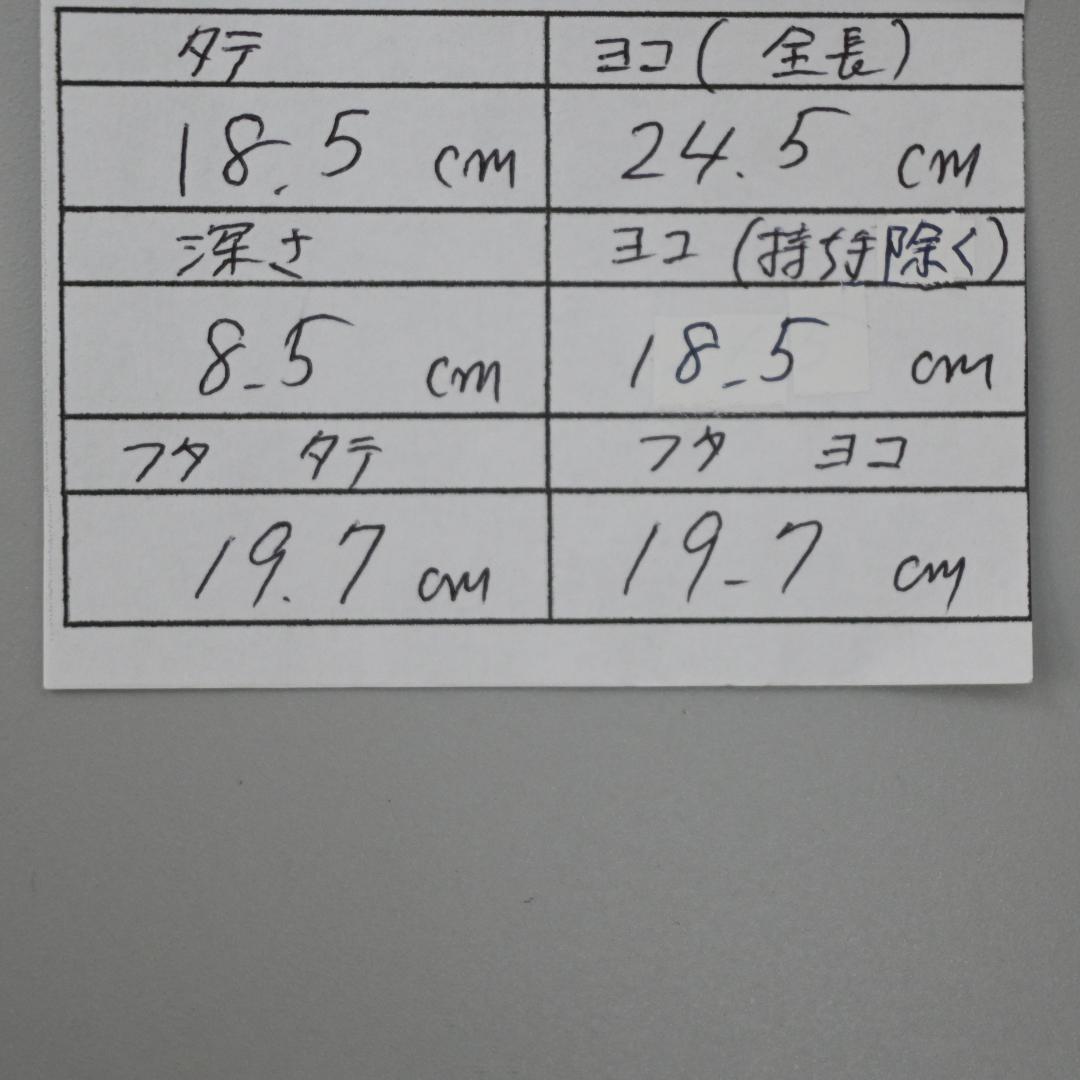 タテ ヨコ(全長)
18.5 cm 24.5 cm
深さ ヨコ(持ち手除く)
8.5 cm 18.5 cm
フタ タテ フタ ヨコ
19.7 cm 19.7 cm